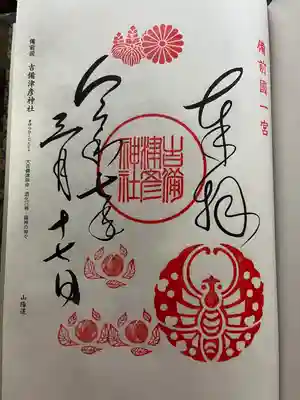 備前國一宮
奉拝
吉備
津彦
神社
令和七年
三月十七日
備前国 吉備津彦神社
山陽道